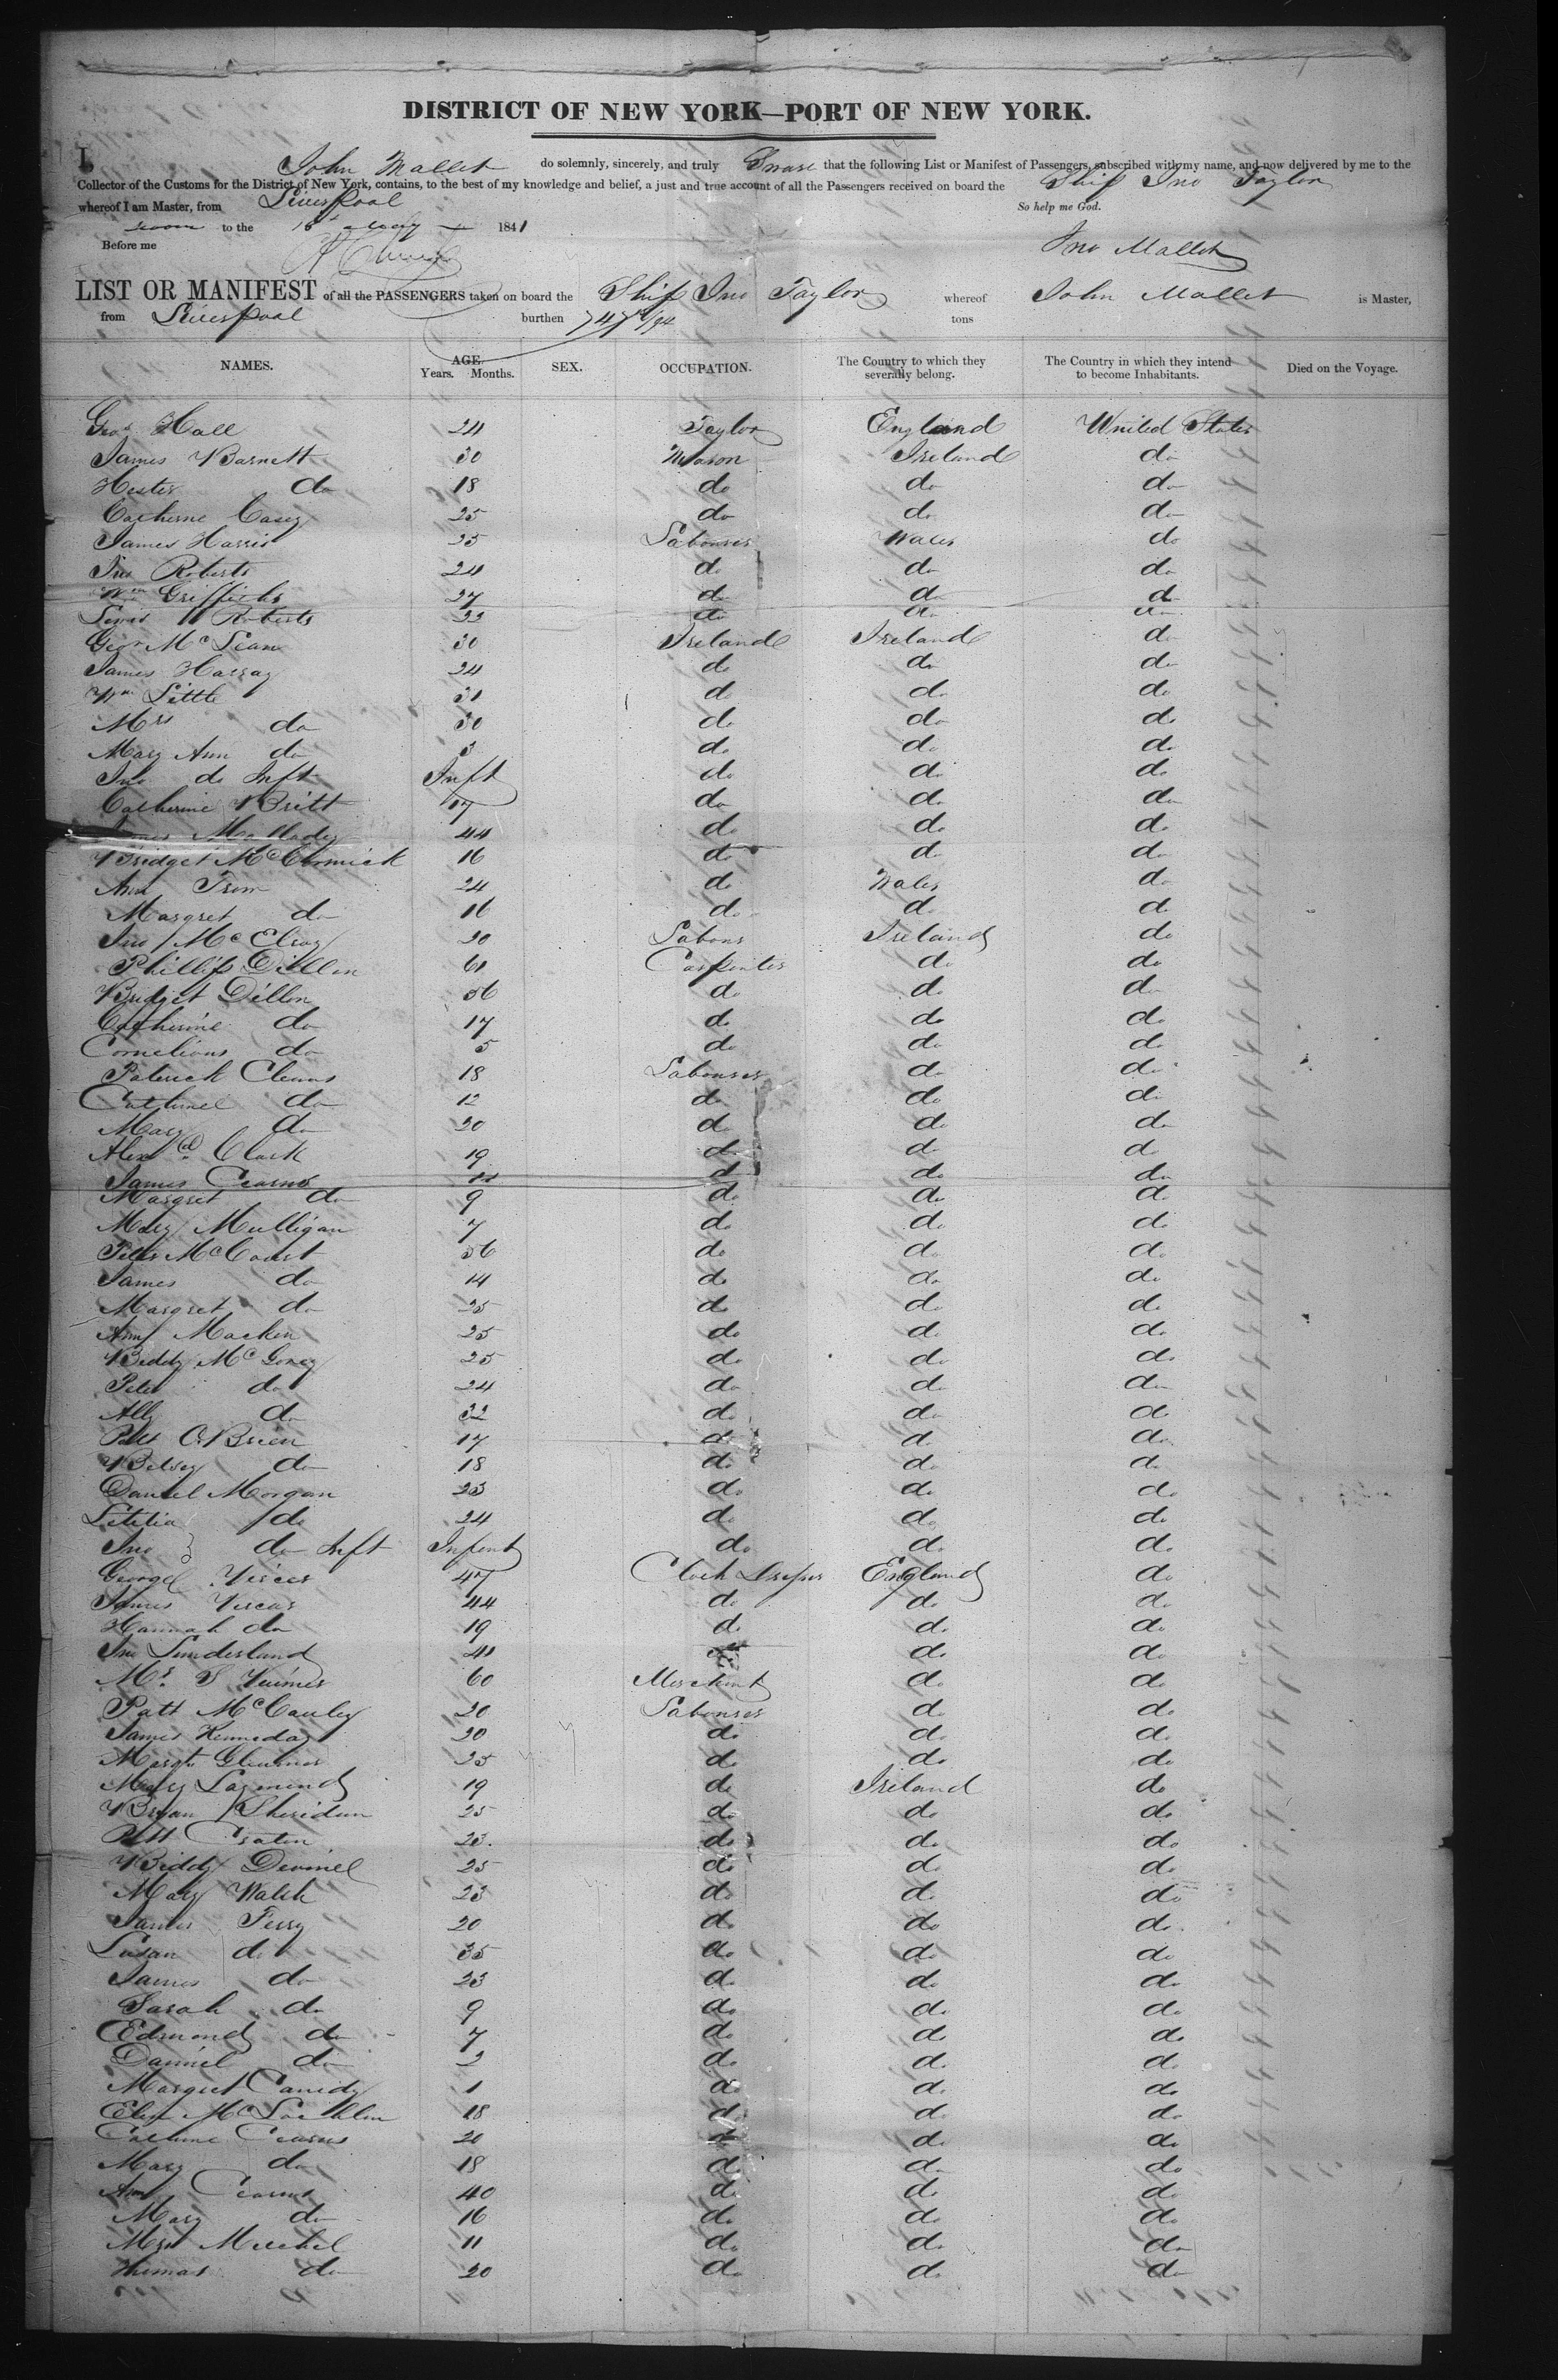 DISTRICT OF NEW YORK—PORT OF NEW YORK.
I John Mallet do solemnly, sincerely, and truly Swear that the following List or Manifest of Passengers, subscribed with my name, and now delivered by me to the
Collector of the Customs for the District of New York, contains, to the best of my knowledge and belief, a just and true account of all the Passengers received on board the Ship Jno Taylor
whereof I am Master, from Liverpool So help me God.
sworn to the 18t May 1841
Before me Jno Mallet
LIST OR MANIFEST of all the PASSENGERS taken on board the Ship Jno Taylor whereof John Mallet is Master,
from Liverpool burthen 747 /94 tons
NAMES. AGE. Years. Months. SEX. OCCUPATION. The Country to which they severally belong. The Country in which they intend to become Inhabitants. Died on the Voyage.
Geo. Hall 24 Taylor England United States
James Barnett 30 Mason Ireland do
Hester do 18 do do do
Catherne Casey 25 do do do
James Harris 25 Labourer Wales do
Jno Roberts 24 do do do
Wm Griffiths 27 do do do
Lewis Roberts 22 do do do
Geo Mc Lean 30 Ireland Ireland do
James Harray 24 do do do
Wm Little 31 do do do
Mrs do 30 do do do
Mary Ann do 3 do do do
Jno do Inft Inft do do do
Catherine Britt 17 do do do
James Malladay 44 do do do
Bridget McCormick 16 do do do
Ann Trim 24 do Wales do
Margret do 16 do do do
Jno McElroy 20 Labour Ireland do
Phillip Dillon 61 Carpenter do do
Bridget Dillon 56 do do do
Catherine do 17 do do do
Cornelious do 5 do do do
Paterick Clevans 18 Labourer do do
do 12 do do do
Mary do 20 do do do
Alexd Clark 19 do do do
James Cearns 11 do do do
Margret do 9 do do do
Mary Mulligan 7 do do do
Peter McCourt 56 do do do
James do 14 do do do
Margret do 25 do do do
Ann Macken 25 do do do
Biddy McGoney 25 do do do
Peter do 24 do do do
Ally do 32 do do do
Patt OBrien 17 do do do
Betsey do 18 do do do
Daniel Morgan 23 do do do
Letitia do 24 do do do
Jno do Inft Infent do do do
George Vicars 47 Cloth Dresser England do
James Vicars 44 do do do
Hannah do 19 do do do
Jno Sunderland 41 do do do
Mr. S 60 Merchent do do
Patt McCauley 20 Labourer do do
James Kenneday 20 do do do
Margt 25 do do do
Mary 19 do Ireland do
Bryan Sheridan 25 do do do
Patt Craten 23. do do do
Biddy 25 do do do
Mary Walsh 23 do do do
James Ferry 20 do do do
Susan do 35 do do do
James do 23 do do do
Sarah do 9 do do do
Edmond do 7 do do do
Daniel do 2 do do do
Margret Canidy 1 do do do
Eliza McLochlin 18 do do do
Catherine Cearns 20 do do do
Mary do 18 do do do
Ann Cearns 40 do do do
Mary do 16 do do do
Mary Mitchel 11 do do do
Thomas do 20 do do do